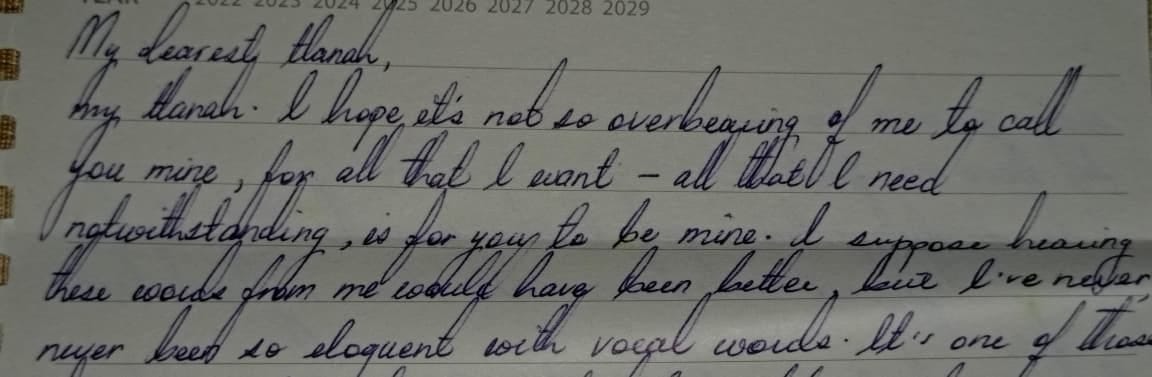 YEAR 2022 2023 2024 2025 2026 2027 2028 2029
My dearest Hanah,
my Hanah. I hope it's not so overbearing of me to call
you mine, for all that I want - all that I need
notwithstanding, is for you to be mine. I suppose hearing
these words from me would have been better, but I've never
never been so eloquent with vocal words. It's one of those